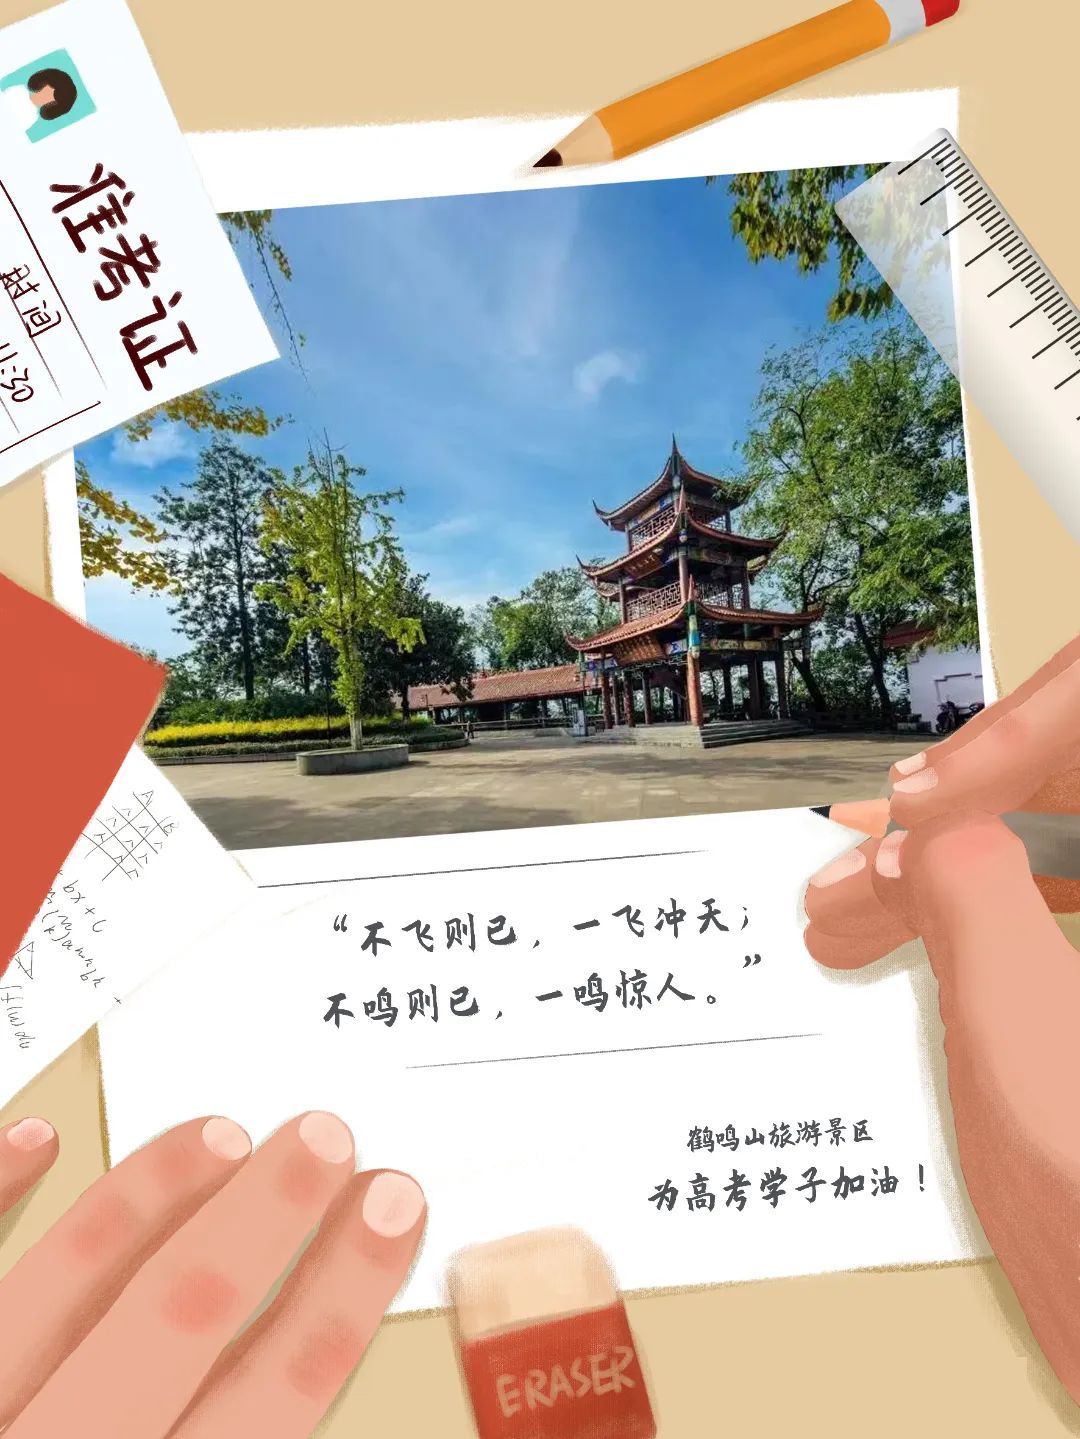 准考证
时间
11:30
“不飞则已，一飞冲天；
不鸣则已，一鸣惊人。”
鹤鸣山旅游景区
为高考学子加油！
ERASER